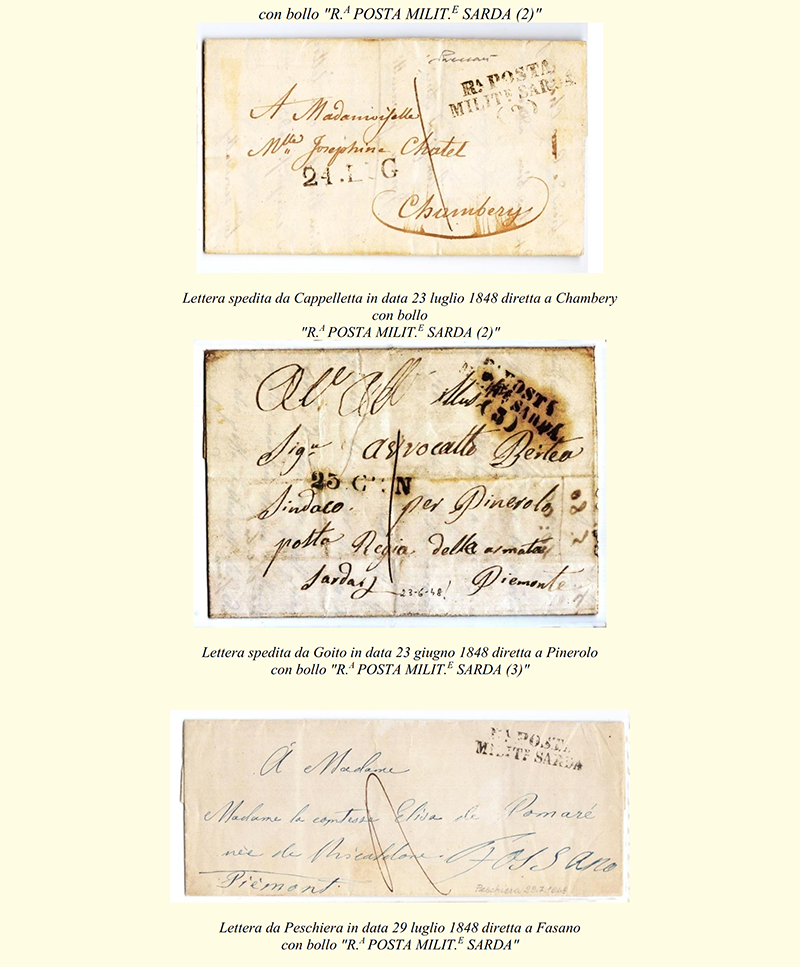 con bollo "R.A POSTA MILIT.E SARDA (2)"
RA POSTA
MILITE SARDA
(2)
A Madamoiselle
Mlle Joséphine Chatel
24.LUG
Chambery
Lettera spedita da Cappelletta in data 23 luglio 1848 diretta a Chambery
con bollo
"R.A POSTA MILIT.E SARDA (2)"
POST
SARD
(3)
All' Ill
Sigr avvocatto Bertea
25.GIUN
Sindaco. per Pinerolo
posta Regia della armata
Sarda Piemonte
23-6-48!
Lettera spedita da Goito in data 23 giugno 1848 diretta a Pinerolo
con bollo "R.A POSTA MILIT.E SARDA (3)"
RA POSTA
MILITE SARDA
À Madame
Madame la comtesse Elisa de Pomaré
née de Riscaldone. FOSSANO
Piémont.
Peschiera 29.7.1848
Lettera da Peschiera in data 29 luglio 1848 diretta a Fasano
con bollo "R.A POSTA MILIT.E SARDA"